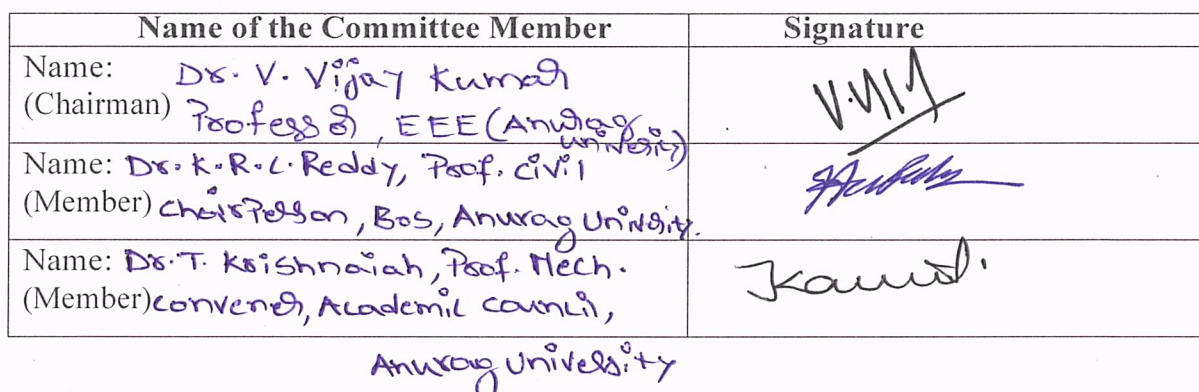 Name of the Committee Member Signature
Name: Dr. V. Vijay Kumar
(Chairman) Professor, EEE (Anurag
University)
Name: Dr. K. R. L. Reddy, Prof. Civil
(Member) Chairperson, Bos, Anurag University.
Name: Dr. T. Krishnaiah, Prof. Mech.
(Member) Convener, Academic Council,
Anurag University